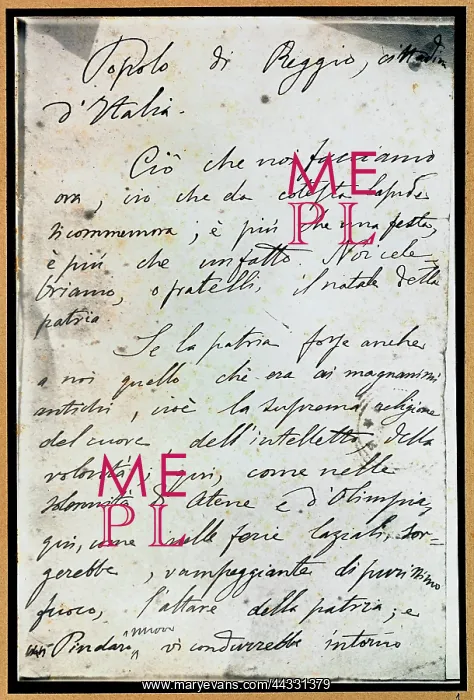 Popolo di Reggio, cittadini
d'Italia.
Ciò che noi facciamo
ora, ciò che da cotesta lapide
si commemora; è più che una festa,
è più che un fatto. Noi cele-
briamo, o fratelli, il natale della
patria.
Se la patria fosse anche
a noi quello che era ai magnanimi
antichi, cioè la suprema religione
del cuore dell'intelletto, della
volontà; qui, come nelle
solennità di Atene e d'Olimpia,
qui, come nelle ferie laziali, sor-
gerebbe, vampeggiante di purissimo
fuoco, l'altare della patria; e
nuovo
un Pindaro vi condurrebbe intorno
ME
PL
ME
PL
www.maryevans.com/44331379